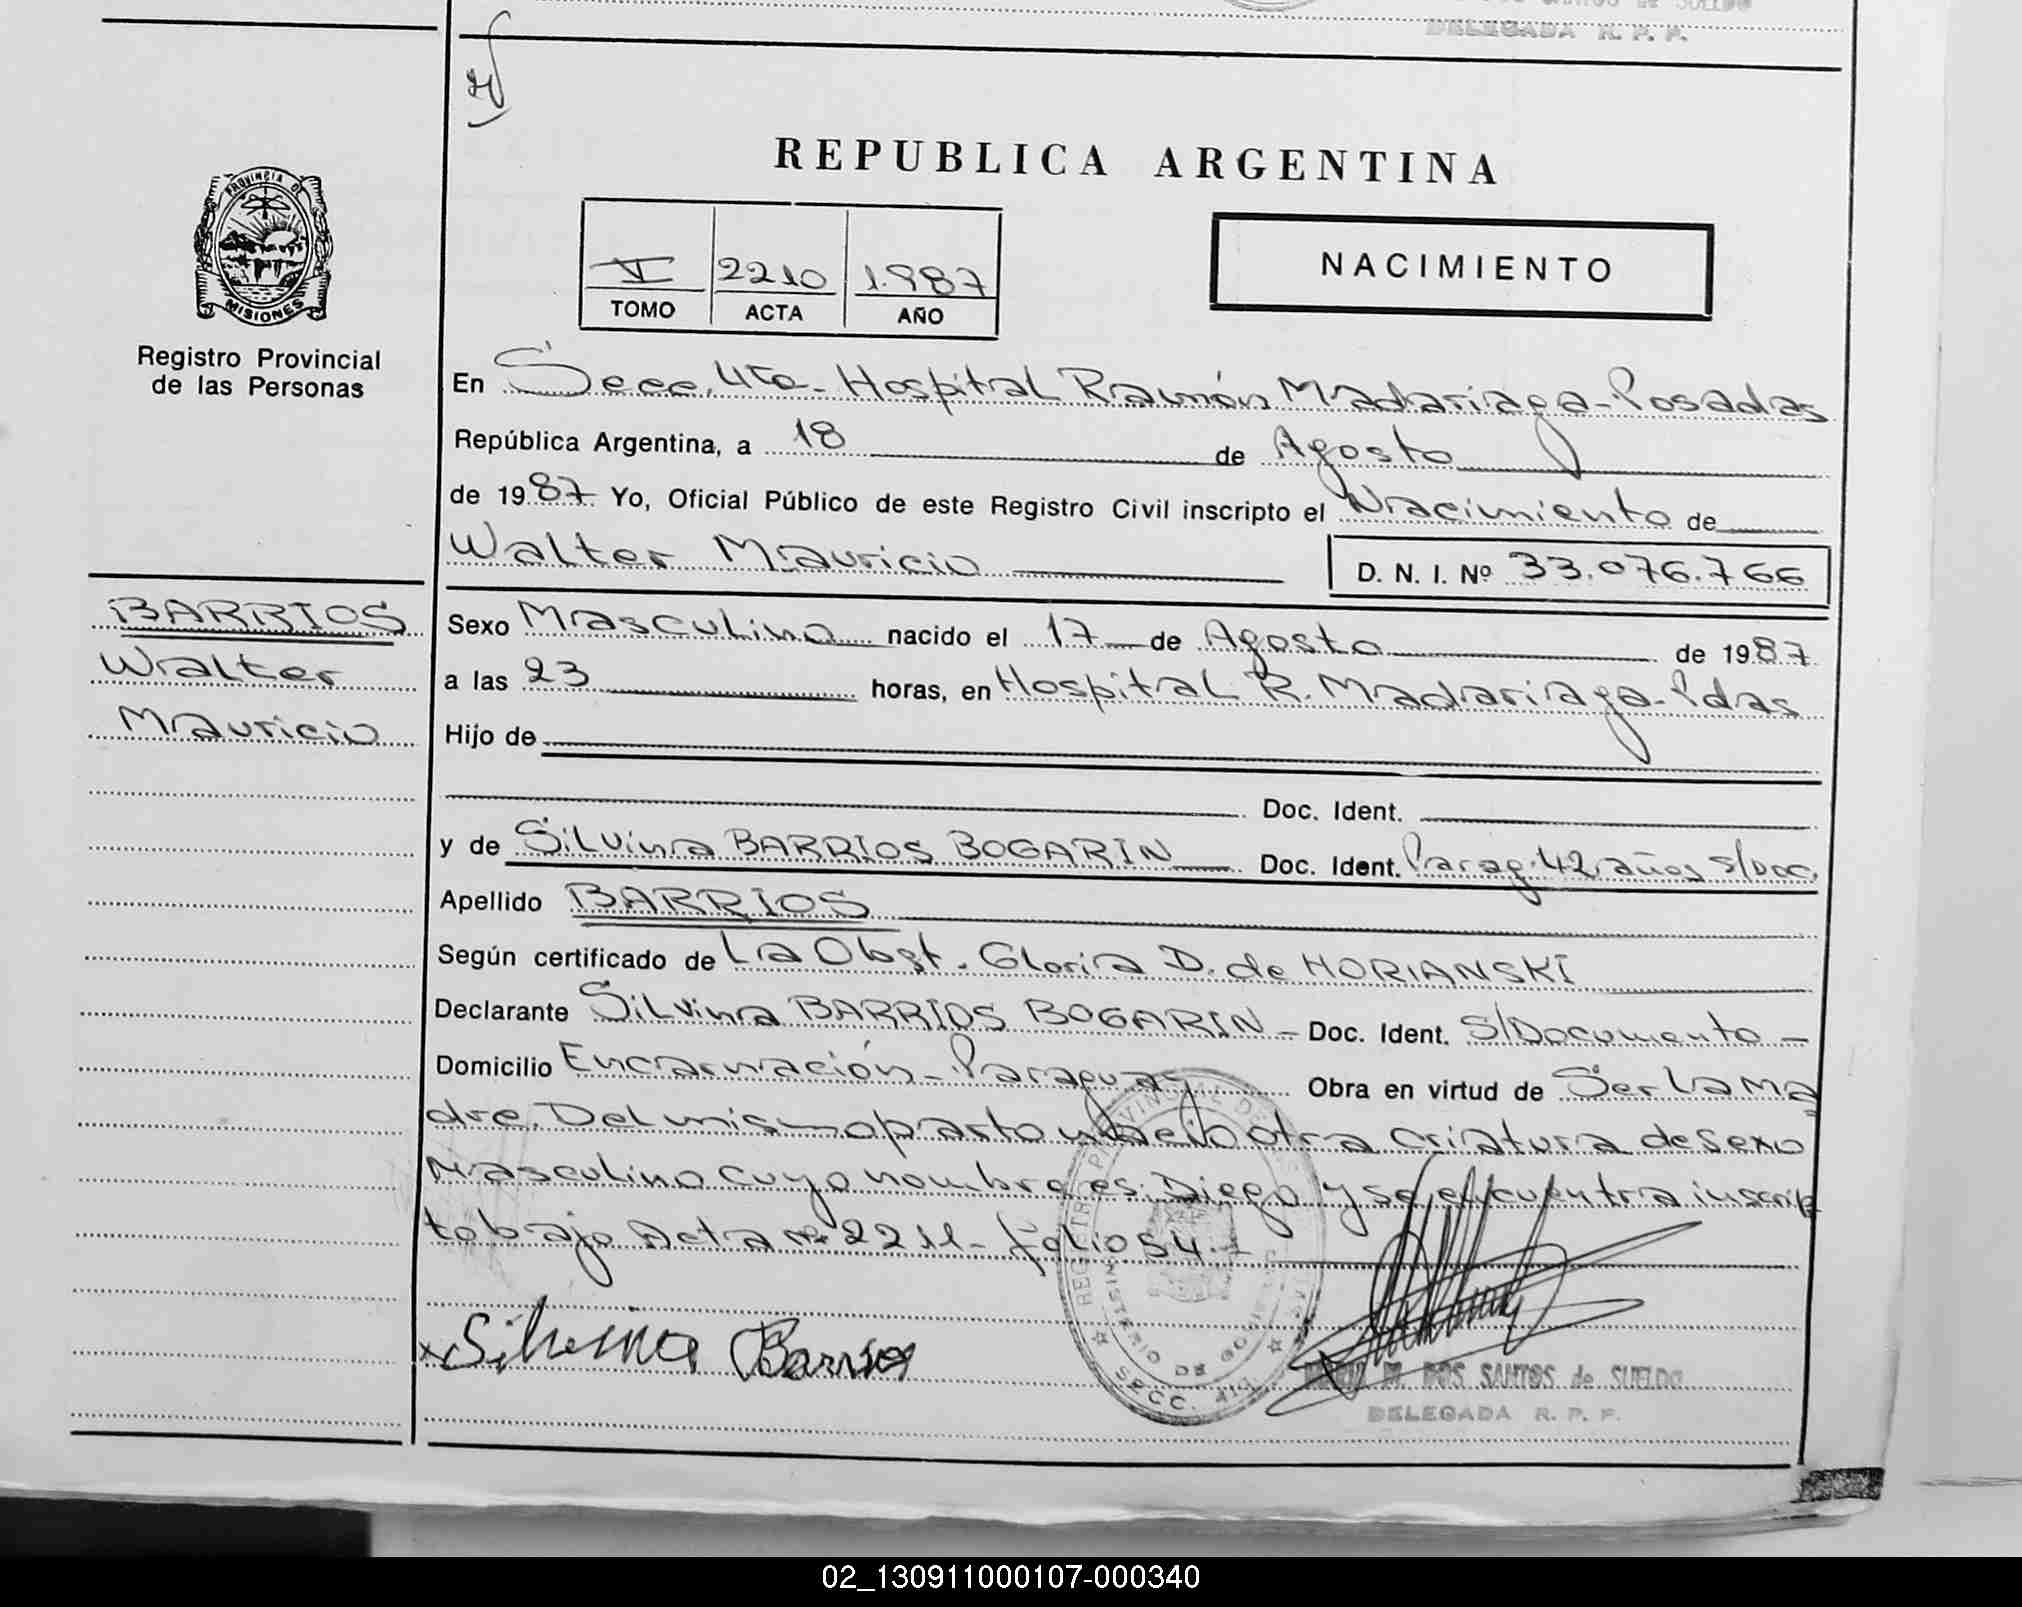 DELEGADA R. P. P.
REPUBLICA ARGENTINA
PROVINCIA DE
MISIONES
Registro Provincial
de las Personas
VI 2210 1.987
TOMO ACTA AÑO
NACIMIENTO
En Secc. 4ta - Hospital Ramón Madariaga - Posadas
República Argentina, a 18 de Agosto
de 1987 Yo, Oficial Público de este Registro Civil inscripto el Nacimiento de
Walter Mauricio D. N. I. Nº 33.076.766
BARRIOS
Walter
Mauricio
Sexo Masculino nacido el 17 de Agosto de 1987
a las 23 horas, en Hospital R. Madariaga - Pdas
Hijo de
Doc. Ident.
y de Silvina BARRIOS BOGARIN Doc. Ident. Parag. 42 años S/Doc.
Apellido BARRIOS
Según certificado de La Obst. Gloria D. de HORIANSKI
Declarante Silvina BARRIOS BOGARIN - Doc. Ident. S/Documento -
Domicilio Encarnación - Paraguay Obra en virtud de Ser la ma
dre. Del mismo parto nació otra criatura de sexo
Masculino cuyo nombre es: Diego y se encuentra inscrip
to bajo Acta nº 2211 - folio 54. -
Silvina Barrios
SECC. 4ta
DOS SANTOS de SUELDO
DELEGADA R. P. P.
02_130911000107-000340